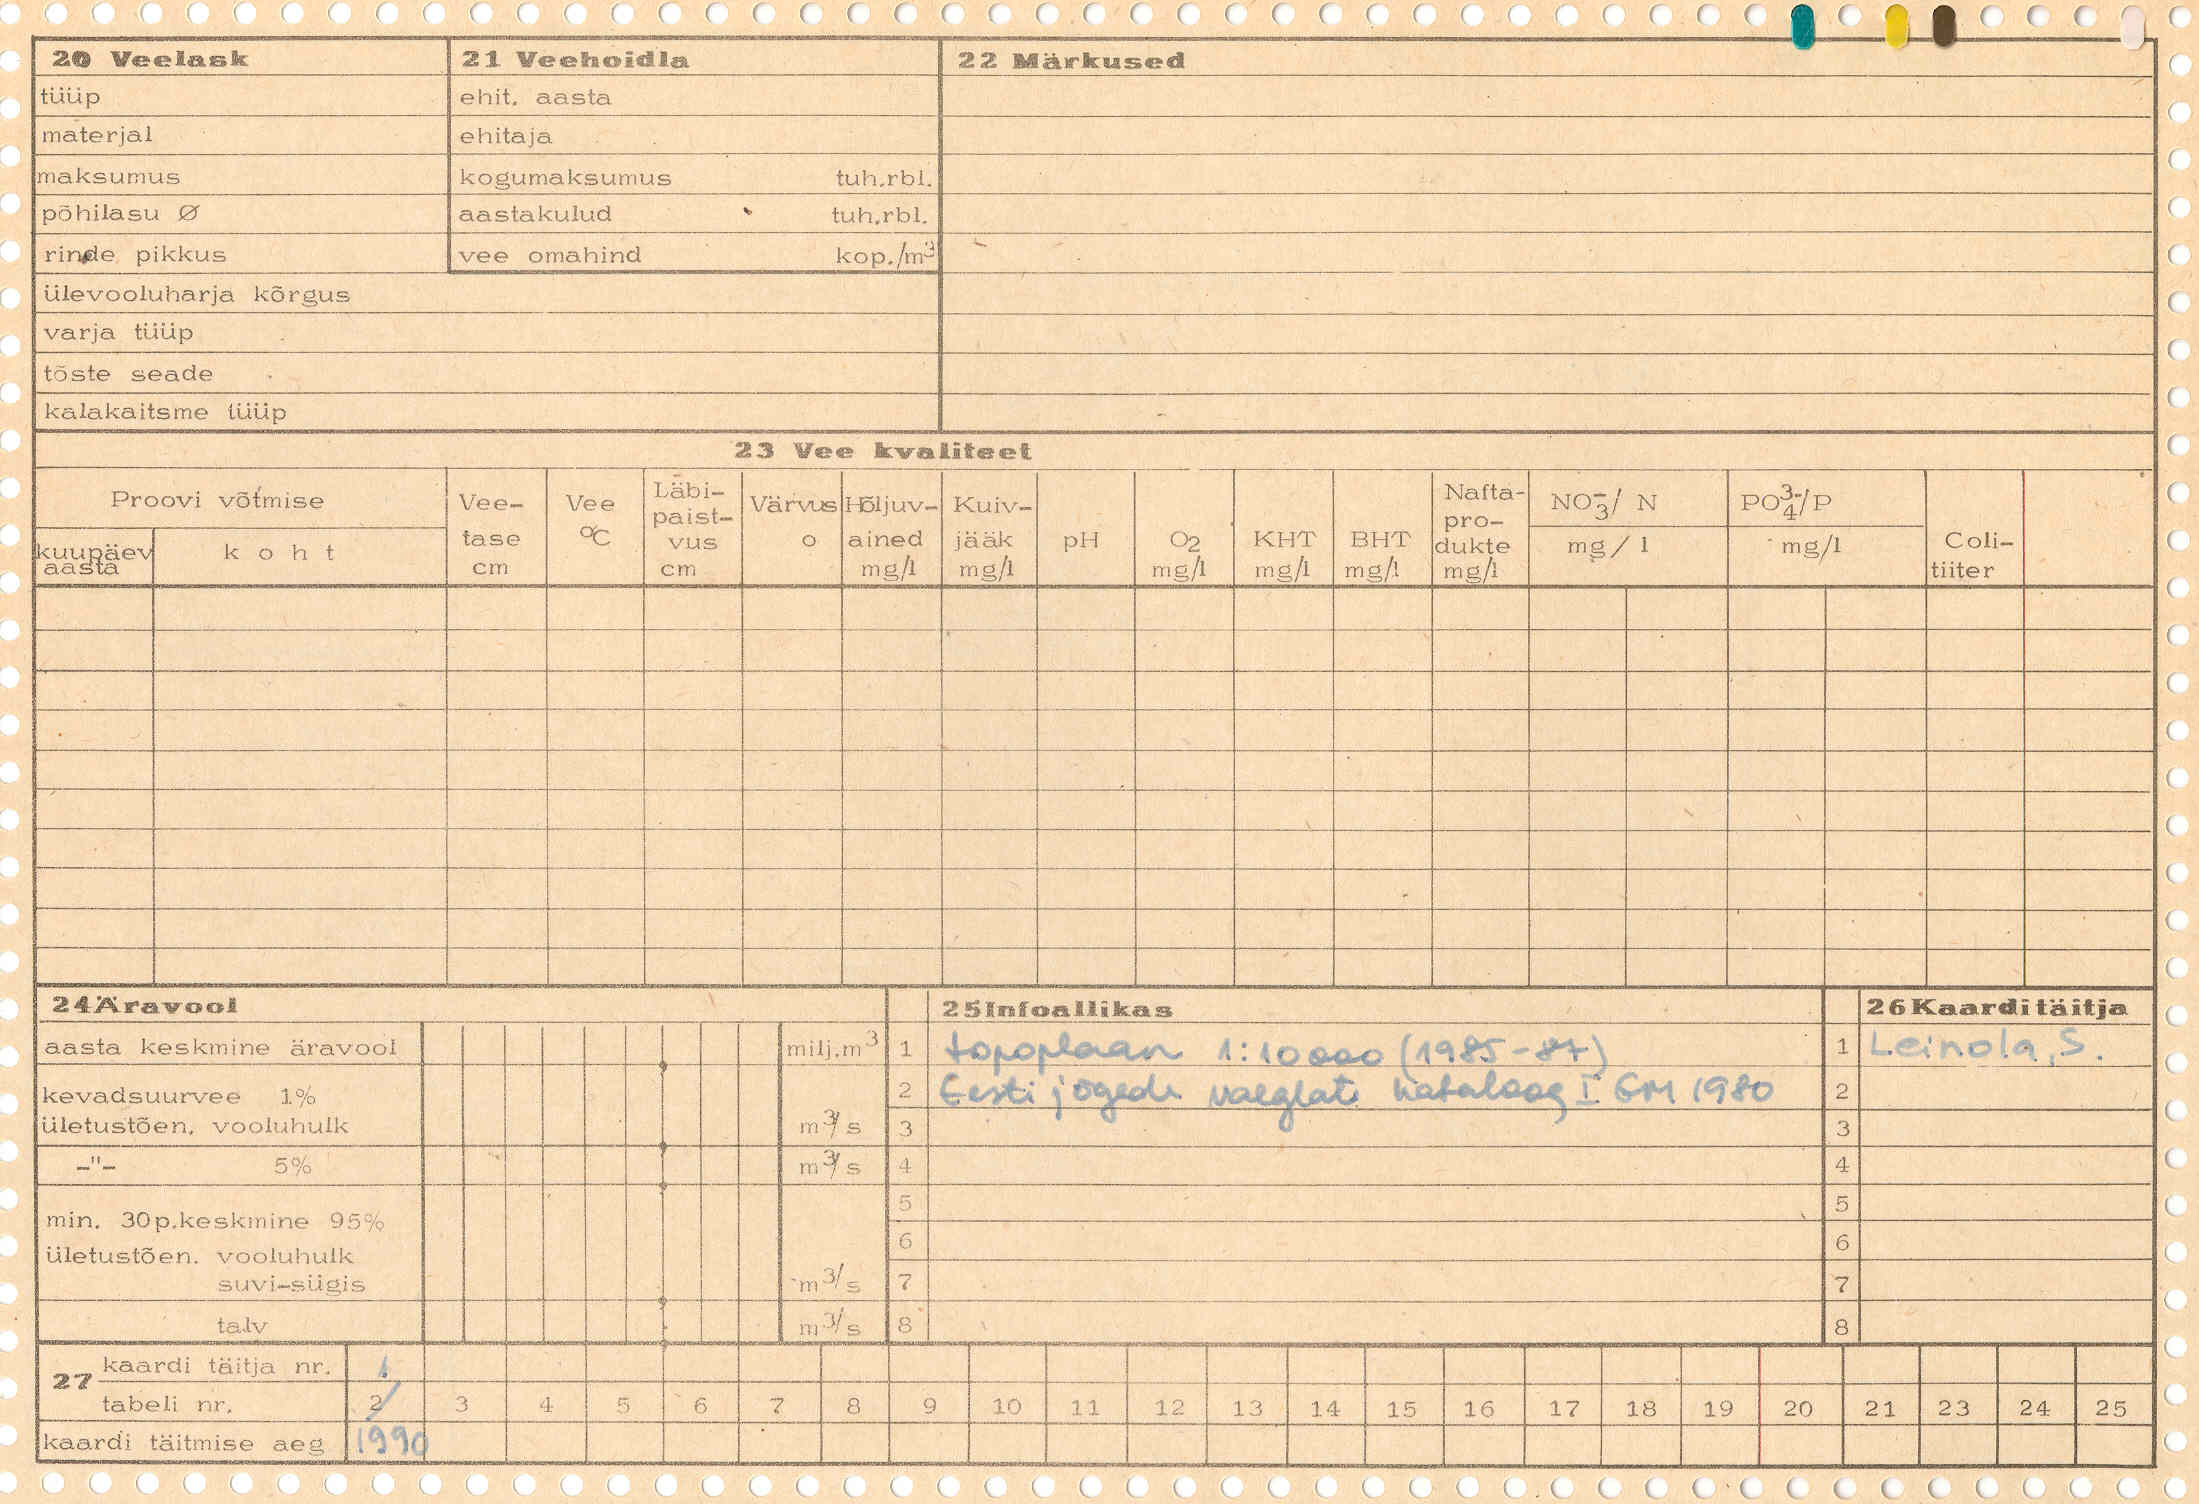 20 Veelask
tüüp
materjal
maksumus
põhilasu Ø
rinde pikkus
ülevooluharja kõrgus
varja tüüp
tõste seade
kalakaitsme tüüp
21 Veehoidla
ehit. aasta
ehitaja
kogumaksumus tuh.rbl.
aastakulud tuh.rbl.
vee omahind kop./m³
22 Märkused
23 Vee kvaliteet
Proovi võtmise
kuupäev
aasta
koht
Vee-
tase
cm
Vee
°C
Läbi-
paist-
vus
cm
Värvus
o
Hõljuv-
ained
mg/l
Kuiv-
jääk
mg/l
pH
O₂
mg/l
KHT
mg/l
BHT
mg/l
Nafta-
pro-
dukte
mg/l
NO₃⁻/ N
mg/l
PO₄³⁻/P
mg/l
Coli-
tiiter
24 Äravool
aasta keskmine äravool milj.m³
kevadsuurvee 1%
ületustõen. vooluhulk m³/s
-"- 5% m³/s
min. 30p.keskmine 95%
ületustõen. vooluhulk
suvi-sügis m³/s
talv m³/s
25 Infoallikas
1 topoplaan 1:10000 (1985-87)
2 Eesti jõgede kataloog I 1980
3
4
5
6
7
8
26 Kaarditäitja
1 Leinola, S.
2
3
4
5
6
7
8
27 kaardi täitja nr. 1
tabeli nr. 2 3 4 5 6 7 8 9 10 11 12 13 14 15 16 17 18 19 20 21 23 24 25
kaardi täitmise aeg 1990